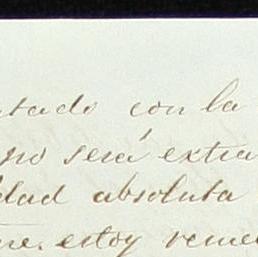 ntado con la
no será extra
dad absoluta
me. estoy reme